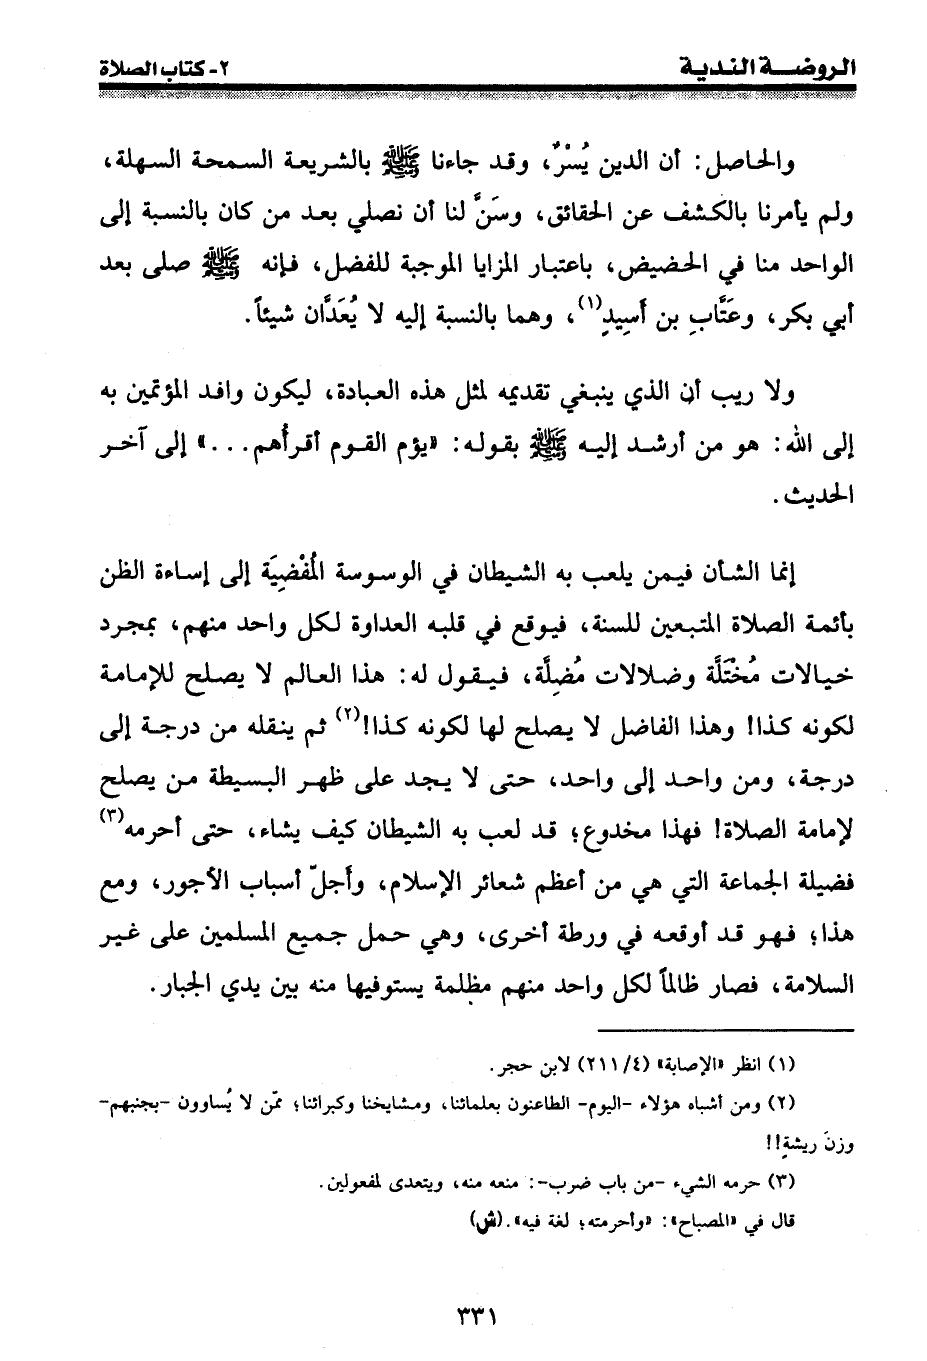 الروضـــة النـديـة
٢- كتاب الصلاة
والحاصل: أن الدين يُسْرٌ، وقد جاءنا ﷺ بالشريعة السمحة السهلة،
ولم يأمرنا بالكشف عن الحقائق، وسَنَّ لنا أن نصلي بعد من كان بالنسبة إلى
الواحد منا في الحضيض، باعتبار المزايا الموجبة للفضل، فإنه ﷺ صلى بعد
أبي بكر، وعَتَّابِ بن أَسِيدٍ(١)، وهما بالنسبة إليه لا يُعَدَّان شيئاً.
ولا ريب أن الذي ينبغي تقديمه لمثل هذه العبادة، ليكون وافد المؤتمين به
إلى الله: هو من أرشد إليه ﷺ بقوله: «يؤم القوم أقرأُهم...» إلى آخر
الحديث.
إنما الشأن فيمن يلعب به الشيطان في الوسوسة المُفْضِيَة إلى إساءة الظن
بأئمة الصلاة المتبعين للسنة، فيوقع في قلبه العداوة لكل واحد منهم، بمجرد
خيالات مُخْتَلَّة وضلالات مُضِلَّة، فيقول له: هذا العالم لا يصلح للإمامة
لكونه كذا! وهذا الفاضل لا يصلح لها لكونه كذا!(٢) ثم ينقله من درجة إلى
درجة، ومن واحد إلى واحد، حتى لا يجد على ظهر البسيطة من يصلح
لإمامة الصلاة! فهذا مخدوع؛ قد لعب به الشيطان كيف يشاء، حتى أحرمه(٣)
فضيلة الجماعة التي هي من أعظم شعائر الإسلام، وأجلّ أسباب الأجور، ومع
هذا؛ فهو قد أوقعه في ورطة أخرى، وهي حمل جميع المسلمين على غير
السلامة، فصار ظالماً لكل واحد منهم مظلمة يستوفيها منه بين يدي الجبار.
(١) انظر «الإصابة» (٤/ ٢١١) لابن حجر.
(٢) ومن أشباه هؤلاء -اليوم- الطاعنون بعلمائنا، ومشايخنا وكبرائنا؛ ممّن لا يُساوون -بجنبهم-
وزنَ ريشةٍ!!
(٣) حرمه الشيء -من باب ضرب-: منعه منه، ويتعدى لمفعولين.
قال في «المصباح»: «وأحرمته؛ لغة فيه».(ش)
٣٣١